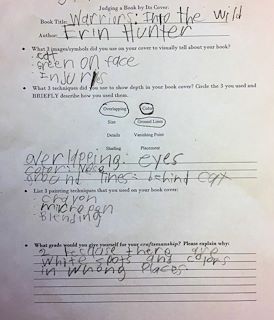 Judging a Book by Its Cover:
Book Title: Warrions: Into the wild
Author: Erin Hunter
What 3 images/symbols did you use on your cover to visually tell about your book?
cat
green on face
Injury
What 3 techniques did you use to show depth in your book cover? Circle the 3 you used and
BRIEFLY describe how you used them.
Overlapping Color
Size Ground Lines
Details Vanishing Point
Shading Placement
overlapping: eyes
color: nose
ground lines: behind cat
List 3 painting techniques that you used on your book cover:
crayon
micropen
blending
What grade would you give yourself for your craftsmanship? Please explain why:
2 because there are
white spots and colors
in whong places.